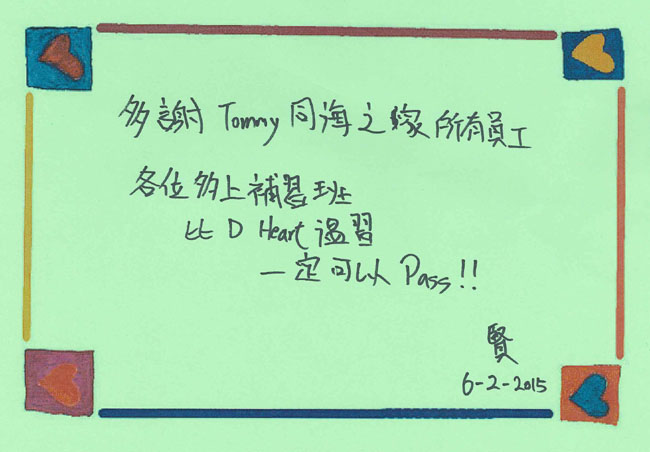 多謝 Tommy 同海之家所有員工
各位多上補習班
比 D Heart 溫習
一定可以 Pass!!
賢
6-2-2015